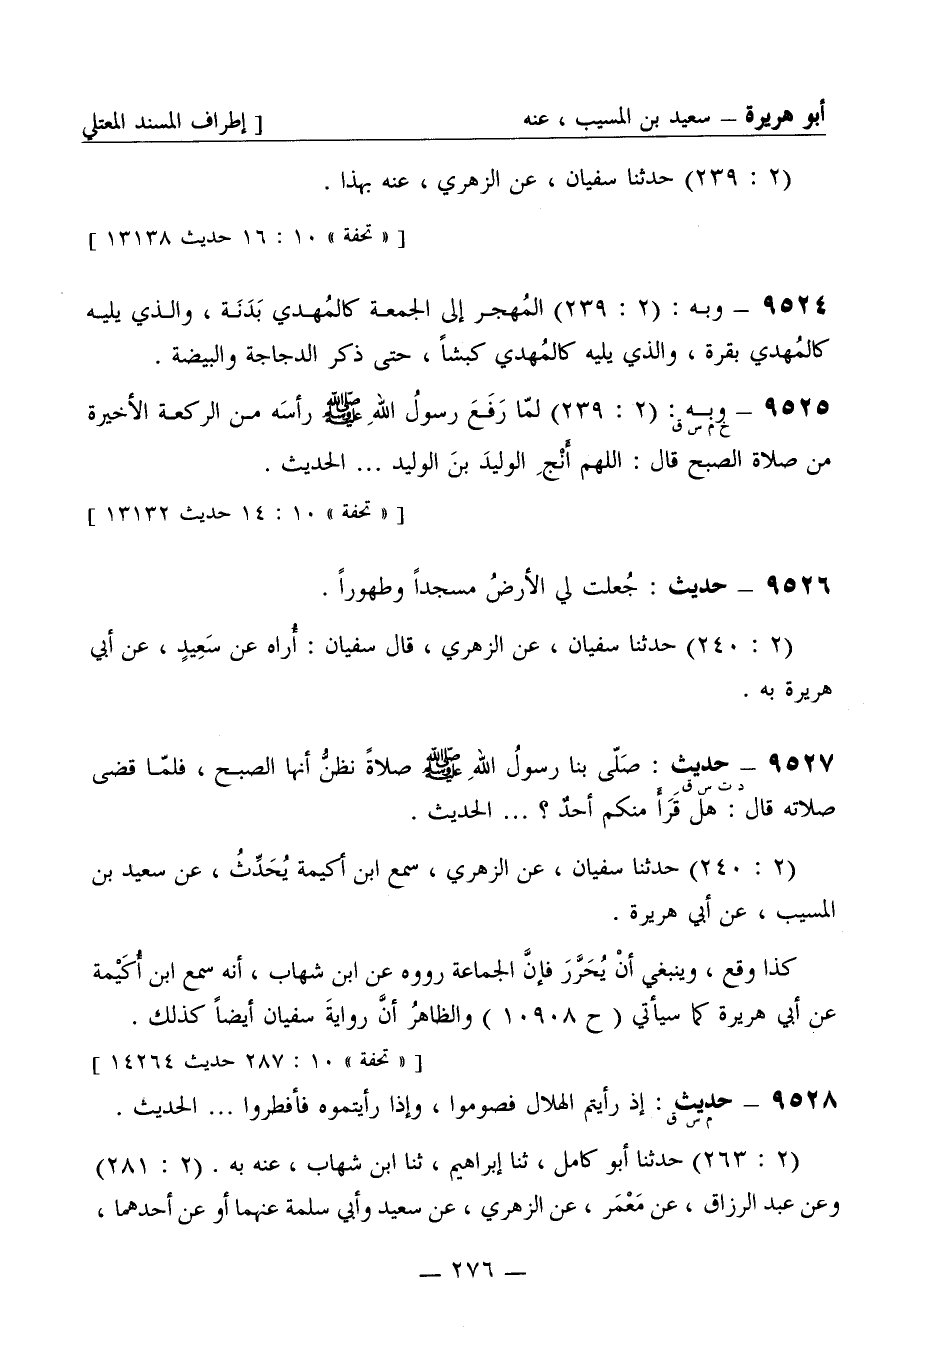 أبو هريرة – سعيد بن المسيب ، عنه [ إطراف المسند المعتلي
(٢ : ٢٣٩) حدثنا سفيان ، عن الزهري ، عنه بهذا .
[ « تحفة » ١٠ : ١٦ حديث ١٣١٣٨ ]
٩٥٢٤ – وبه : (٢ : ٢٣٩) المُهجر إلى الجمعة كالمُهدي بَدَنَة ، والذي يليه
كالمُهدي بقرة ، والذي يليه كالمُهدي كبشاً ، حتى ذكر الدجاجة والبيضة .
٩٥٢٥ – وبه : (٢ : ٢٣٩) لمّا رَفَعَ رسولُ اللهِ ﷺ رأسَه من الركعة الأخيرة
خ م س ق
من صلاة الصبح قال : اللهم أَنْجِ الوليدَ بنَ الوليد ... الحديث .
[ « تحفة » ١٠ : ١٤ حديث ١٣١٣٢ ]
٩٥٢٦ – حديث : جُعلت لي الأرضُ مسجداً وطهوراً .
(٢ : ٢٤٠) حدثنا سفيان ، عن الزهري ، قال سفيان : أُراه عن سَعِيدٍ ، عن أبي
هريرة به .
٩٥٢٧ – حديث : صَلّى بنا رسولُ اللهِ ﷺ صلاةً نظنُّ أنها الصبح ، فلمّا قضى
د ت س ق
صلاته قال : هل قَرَأَ منكم أحدٌ ؟ ... الحديث .
(٢ : ٢٤٠) حدثنا سفيان ، عن الزهري ، سمع ابن أكيمة يُحَدِّثُ ، عن سعيد بن
المسيب ، عن أبي هريرة .
كذا وقع ، وينبغي أنْ يُحَرَّرَ فإنَّ الجماعة رووه عن ابن شهاب ، أنه سمع ابن أُكَيْمة
عن أبي هريرة كما سيأتي ( ح ١٠٩٠٨ ) والظاهرُ أنَّ روايةَ سفيان أيضاً كذلك .
[ « تحفة » ١٠ : ٢٨٧ حديث ١٤٢٦٤ ]
٩٥٢٨ – حديث : إذ رأيتم الهلال فصوموا ، وإذا رأيتموه فأفطروا ... الحديث .
م س ق
(٢ : ٢٦٣) حدثنا أبو كامل ، ثنا إبراهيم ، ثنا ابن شهاب ، عنه به . (٢ : ٢٨١)
وعن عبد الرزاق ، عن مَعْمَر ، عن الزهري ، عن سعيد وأبي سلمة عنهما أو عن أحدهما ،
– ٢٧٦ –